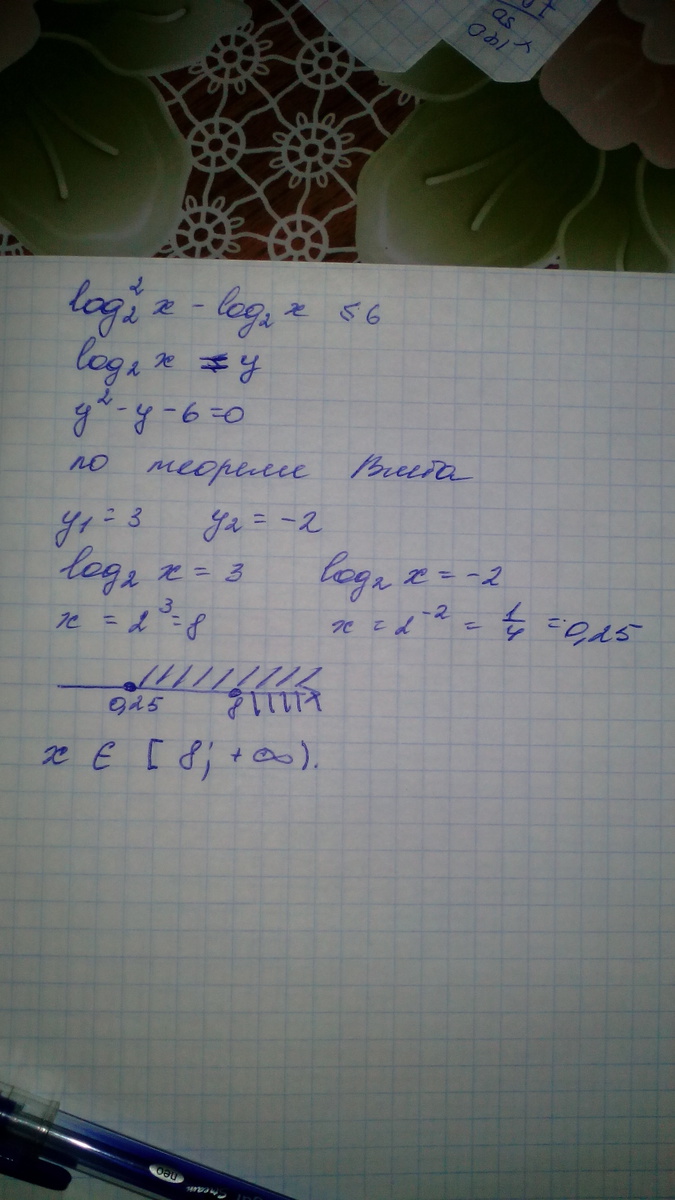 log₂² x - log₂ x ≤ 6
log₂ x = y
y² - y - 6 = 0
по теореме Виета
y₁ = 3 y₂ = -2
log₂ x = 3 log₂ x = -2
x = 2³ = 8 x = 2⁻² = 1/4 = 0,25
0,25 8
x ∈ [ 8; +∞).
neo